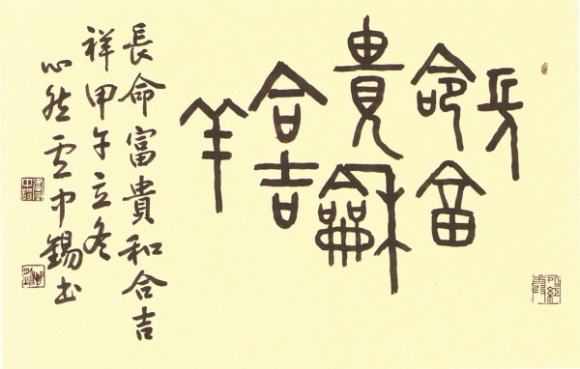 長
命富
貴龢
合吉
羊
長命富貴和合吉
祥甲午立冬
心然云中錫书